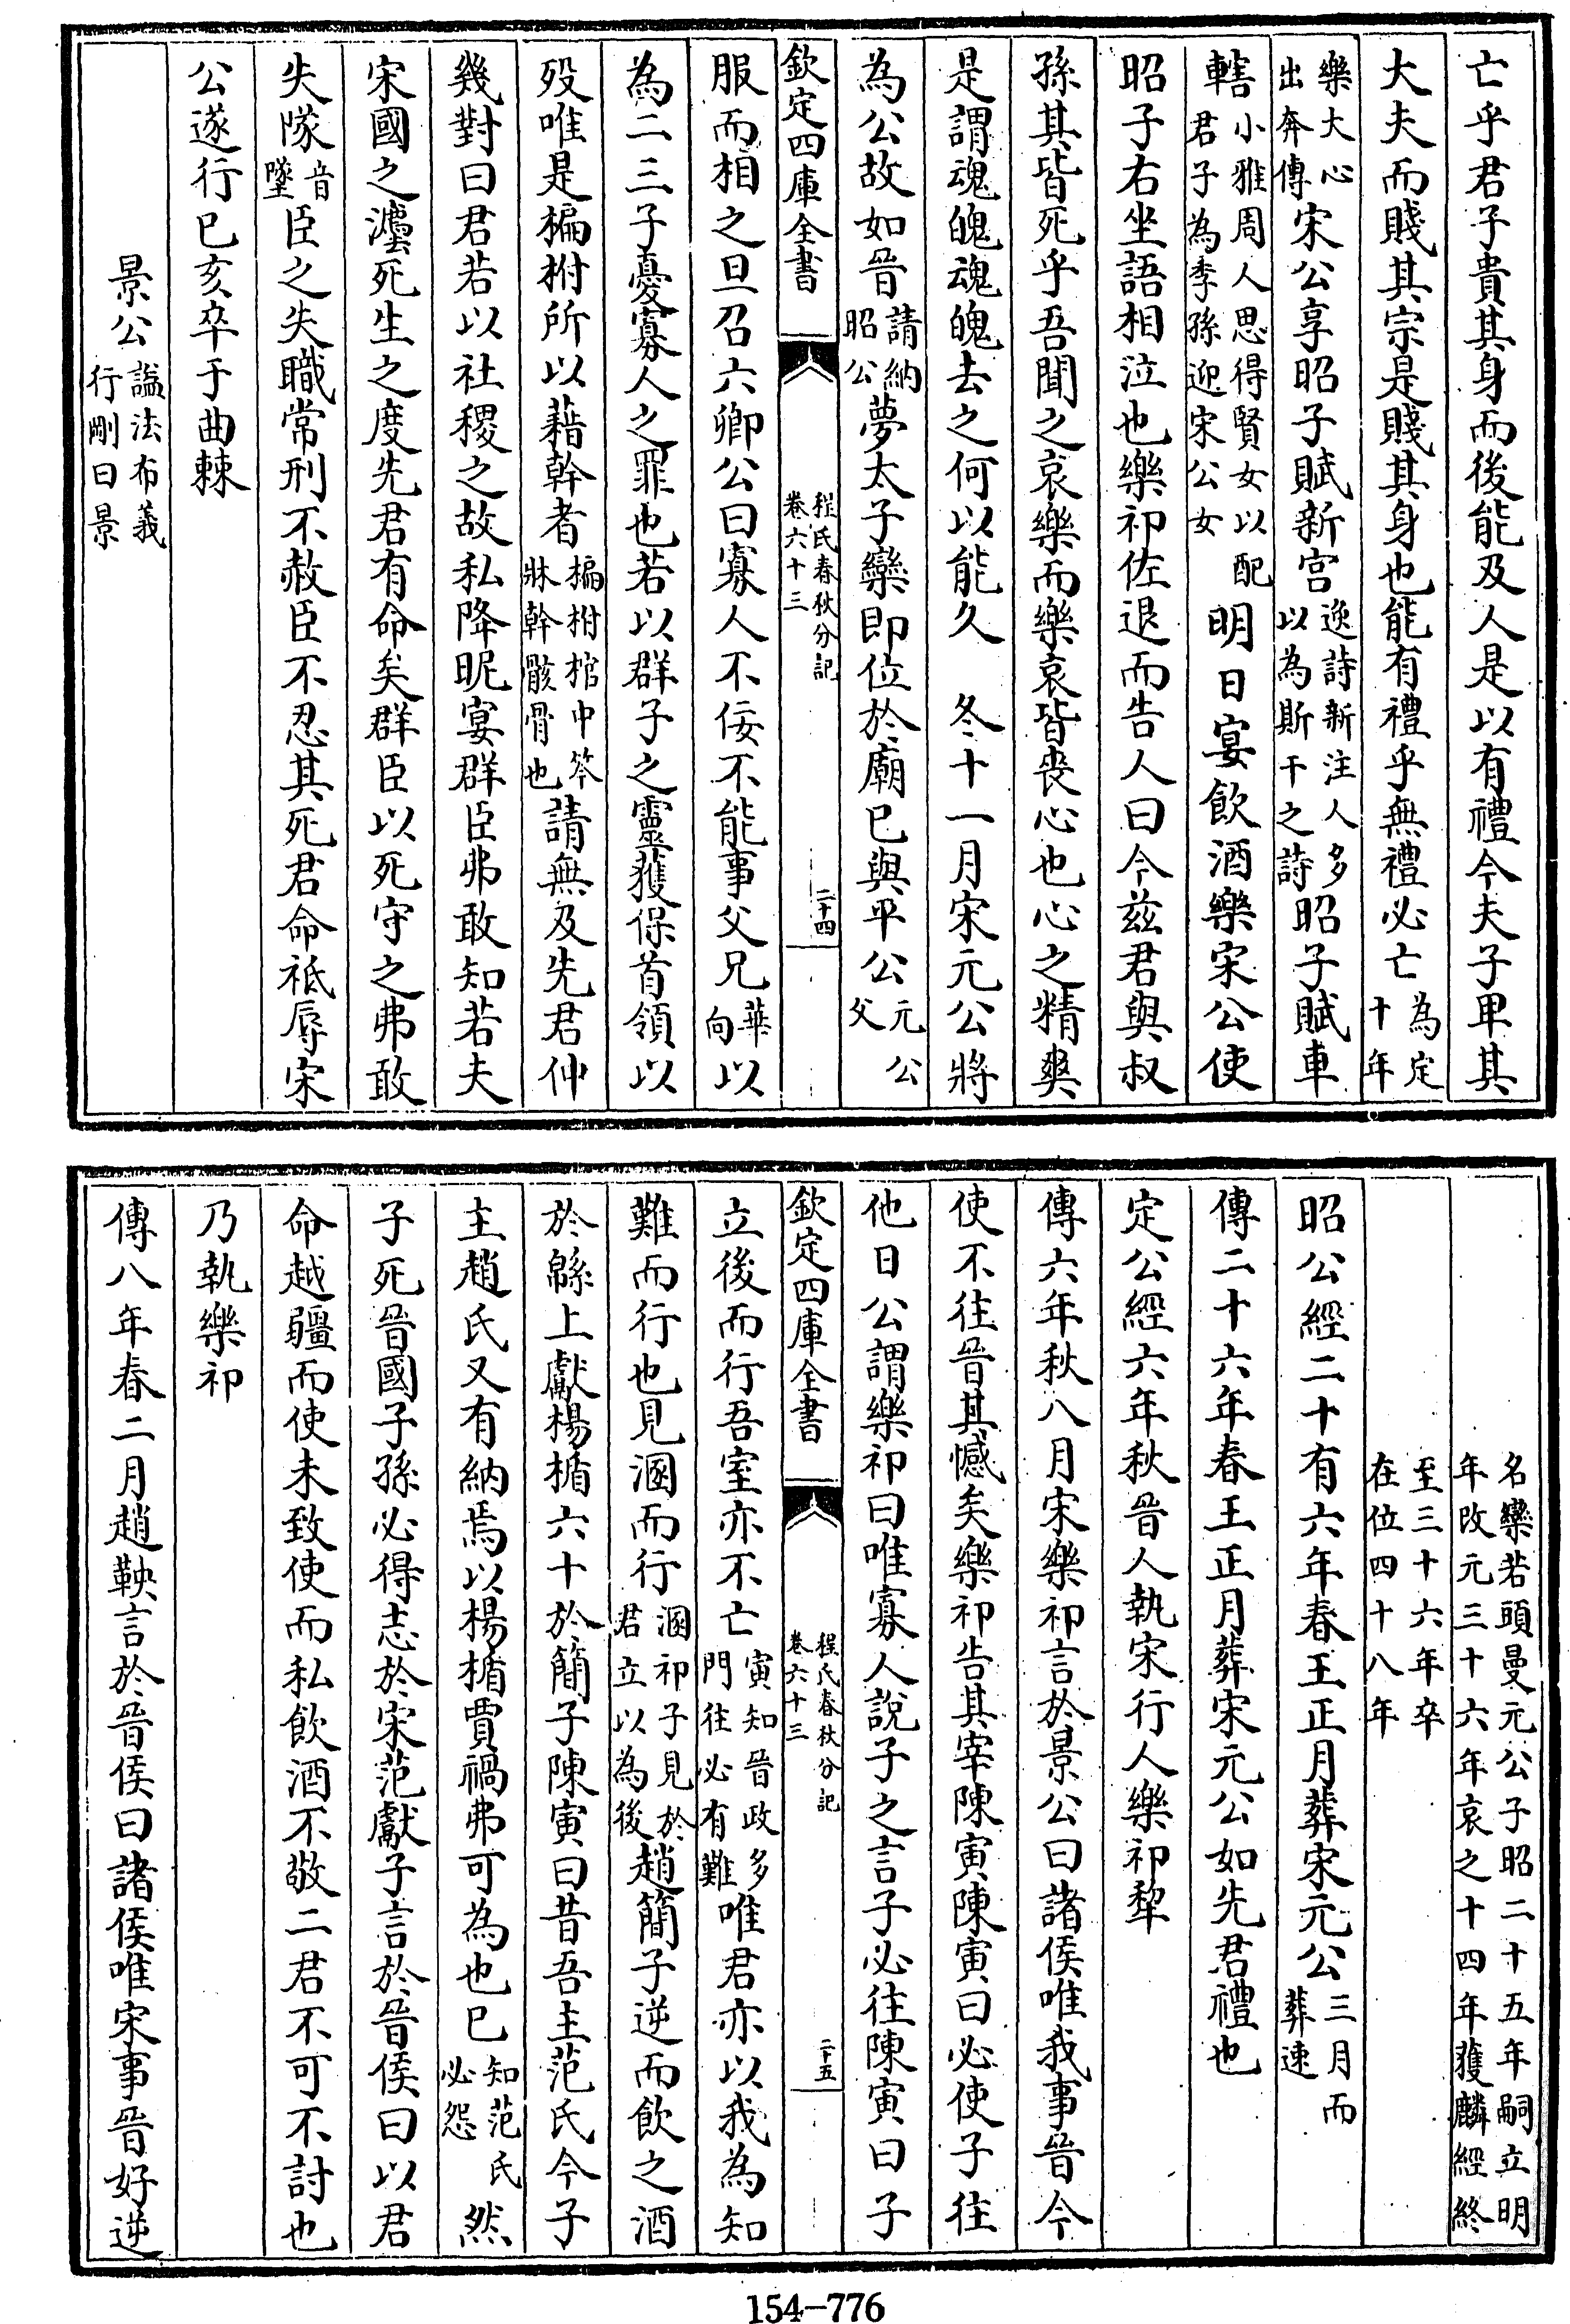 亡乎君子貴其身而後能及人是以有禮今夫子卑其
大夫而賤其宗是賤其身也能有禮乎無禮必亡為定十年
樂大心出奔傳宋公享昭子賦新宫逸詩新注人多以為斯干之詩昭子賦車
轄小雅周人思得賢女以配君子為季孫迎宋公女明日宴飲酒樂宋公使
昭子右坐語相泣也樂祁佐退而告人曰今兹君與叔
孫其皆死乎吾聞之哀樂而樂哀皆喪心也心之精爽
是謂魂魄魂魄去之何以能久　冬十一月宋元公將
為公故如晉請納昭公夢太子欒即位於廟已與平公元公父
欽定四庫全書
程氏春秋分記
卷六十三
二十四
服而相之旦召六卿公曰寡人不佞不能事父兄華向以
為二三子憂寡人之罪也若以群子之靈獲保首領以
殁唯是楄柎所以藉幹者楄柎棺中笭牀幹骸骨也請無及先君仲
幾對曰君若以社稷之故私降昵宴群臣弗敢知若夫
宋國之灋死生之度先君有命矣群臣以死守之弗敢
失隊音墜臣之失職常刑不赦臣不忍其死君命祗辱宋
公遂行已亥卒于曲棘
景公諡法布義行剛曰景
名欒若頭曼元公子昭二十五年嗣立明年改元三十六年哀之十四年獲麟經終
至三十六年卒在位四十八年
昭公經二十有六年春王正月葬宋元公三月而葬速
傳二十六年春王正月葬宋元公如先君禮也
定公經六年秋晉人執宋行人樂祁犂
傳六年秋八月宋樂祁言於景公曰諸侯唯我事晉今
使不往晉其憾矣樂祁告其宰陳寅陳寅曰必使子往
他日公謂樂祁曰唯寡人說子之言子必往陳寅曰子
欽定四庫全書
程氏春秋分記
卷六十三
二十五
立後而行吾室亦不亡寅知晉政多門往必有難唯君亦以我為知
難而行也見溷而行溷祁子見於君立以為後趙簡子逆而飲之酒
於緜上獻楊楯六十於簡子陳寅曰昔吾主范氏今子
主趙氏又有納焉以楊楯賈禍弗可為也已知范氏必怨然
子死晉國子孫必得志於宋范獻子言於晉侯曰以君
命越疆而使未致使而私飲酒不敬二君不可不討也
乃執樂祁
傳八年春二月趙鞅言於晉侯曰諸侯唯宋事晉好逆
154-776